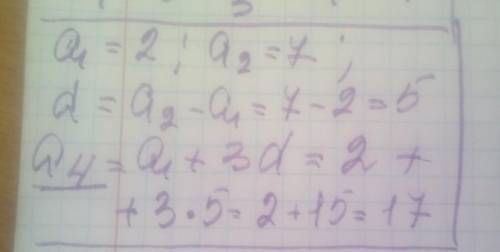 a₁ = 2 ; a₂ = 7 ;
d = a₂ - a₁ = 7 - 2 = 5
a₄ = a₁ + 3d = 2 +
+ 3 · 5 = 2 + 15 = 17